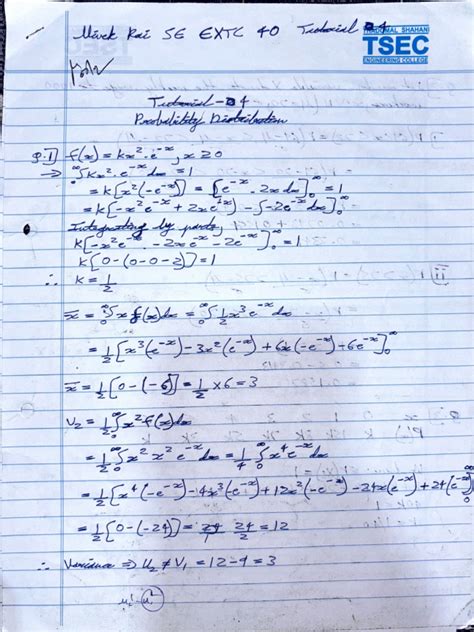 SE EXTC 40 Tutorial 4
THADOMAL SHAHANI
TSEC
ENGINEERING COLLEGE
Tutorial - 4
Probability Distribution
Q.1 f(x) = kx². e⁻ˣ ; x ≥ 0
→ ∞∫₀ kx². e⁻ˣ dx = 1
= k[x²(-e⁻ˣ)] = [e⁻ˣ. 2x dx]₀^∞ = 1
= k[-x²e⁻ˣ + 2xe⁻ˣ) - ∫-2e⁻ˣ dx]₀^∞
Integrating by parts,
k[-x²e⁻ˣ - 2xe⁻ˣ - 2e⁻ˣ]₀^∞ = 1
k[0-(0-0-2)] = 1
∴ k = 1/2
x̄ = ∞∫₀ x f(x) dx = ∞∫₀ 1/2 x³ e⁻ˣ dx
= 1/2 [x³(-e⁻ˣ) - 3x²(e⁻ˣ) + 6x(-e⁻ˣ) - 6e⁻ˣ]₀^∞
x̄ = 1/2 [0-(-6)] = 1/2 × 6 = 3
U₂ = 1/2 ∞∫₀ x² f(x) dx
= 1/2 ∞∫₀ x² x² e⁻ˣ dx = 1/4 ∞∫₀ x⁴ e⁻ˣ dx
= 1/2 [x⁴(-e⁻ˣ) - 4x³(e⁻ˣ) + 12x²(-e⁻ˣ) - 24x(e⁻ˣ) + 24(e⁻ˣ)]₀^∞
= 1/2 [0-(-24)] = 24/2 = 12
∴ Variance ⇒ U₂ ≠ V₁ = 12-9 = 3